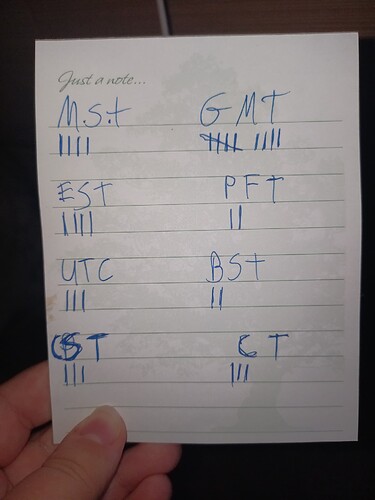 Just a note...
M.S.t GMT
|||| |||| ||||
EST PFT
|||| ||
UTC BSt
||| ||
T CT
||| |||